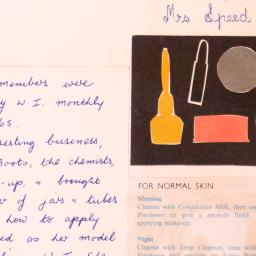 Mrs Speed
members were
W. I. monthly
business,
Boots, the chemists,
-up, & brought
of jars & tubes
how to apply
ed as her model
FOR NORMAL SKIN
Morning
Cleanse with Complexion Milk, then use
Freshener to give a smooth finish
applying make-up.
Night
Cleanse with Deep Cleanser, tone with